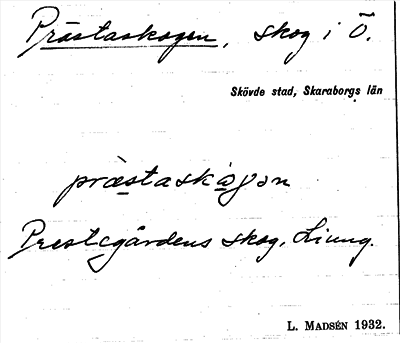 Prästaskogen, skog i Ö.
Skövde stad, Skaraborgs län
præ̀staskágən
Prestegårdens skog, Ljung.
L. MADSÉN 1932.